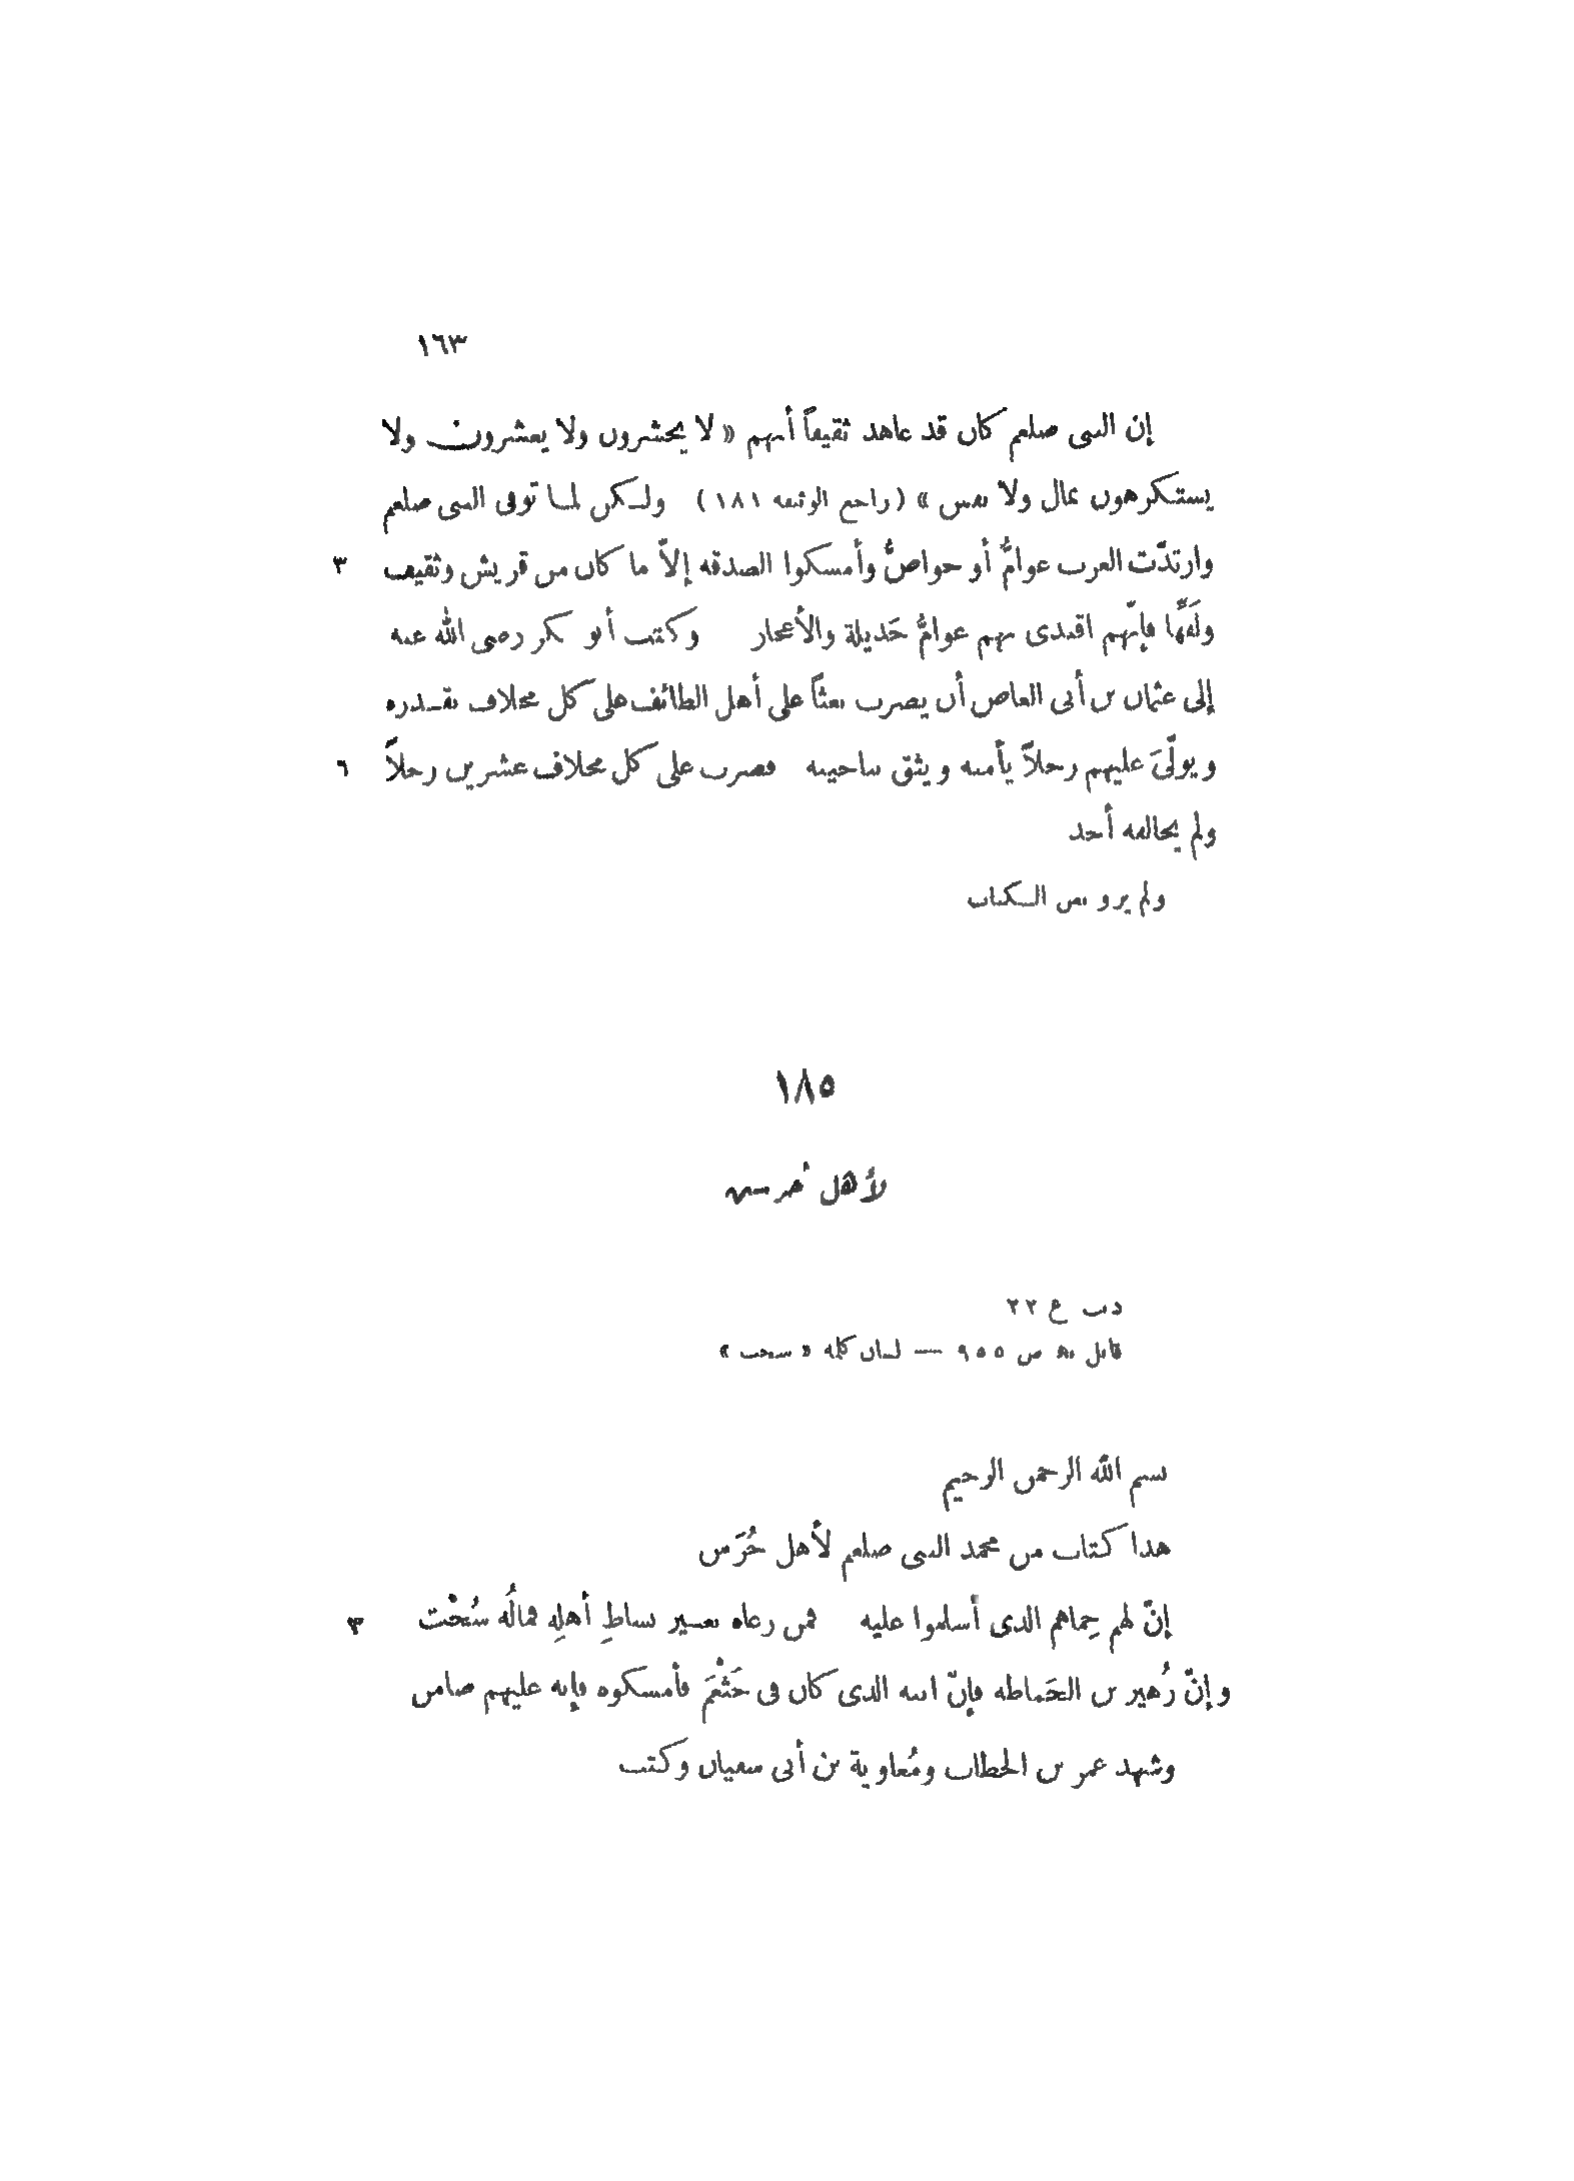 ١٦٣
إن النبي صلعم كان قد عاهد ثقيفاً أنهم « لا يحشرون ولا يعشرون ولا
يستكرهون بمال ولا نفس » (راجع الوثيقة ١٨١) ولكن لما توفى النبي صلعم
وارتدّت العرب عوامُّ أو خواصُّ وأمسكوا الصدقة إلاّ ما كان من قريش وثقيف ٣
ولَفّها فإنّهم اقتدى بهم عوامُّ جَديلة والأعجاز وكتب أبو بكر رضى الله عنه
إلى عثمان بن أبى العاص أن يضرب بعثاً على أهل الطائف على كل مخلاف بقدره
ويولّىَ عليهم رجلاً يأمنه ويثق بناحيته فضرب على كل مخلاف عشرين رجلاً ٦
ولم يخالفه أحد
ولم يرو نص الكتاب
١٨٥
لأهل جُرَش
دىب ع ٢٢
قابل بهـ ص ٩٥٥ — لسان كلمة « سحت »
بسم الله الرحمن الرحيم
هذا كتاب من محمد النبي صلعم لأهل جُرَش
إنّ لهم حِماهم الذى أسلموا عليه فمن رعاه بغير بساطِ أهلِه فمالُه سُحْت ٣
وإنّ زُهير بن الحَماطة فإنّ ابنه الذى كان فى خَثْعَمَ فأمسكوه فإنه عليهم ضامن
وشهد عمر بن الخطاب ومُعاوية بن أبى سفيان وكتب